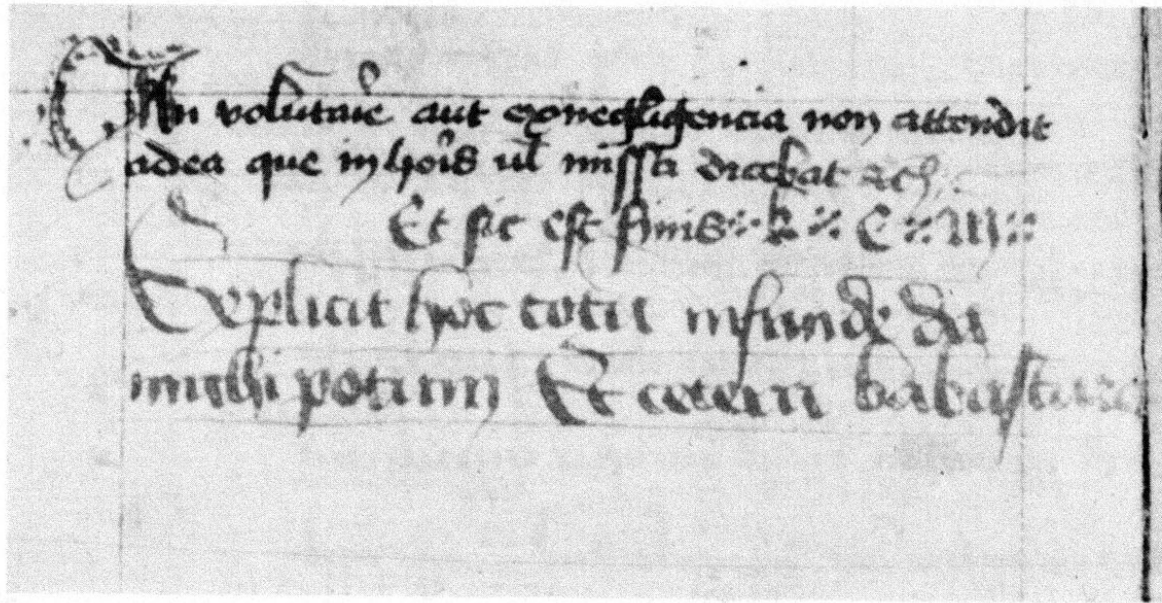 An volu͂tarie aut ex negligencia non attendit
adea que in hoīs ul missa dicebat
Et sic est finis
Explicit hoc totu infunde da
michi potum Et cetera